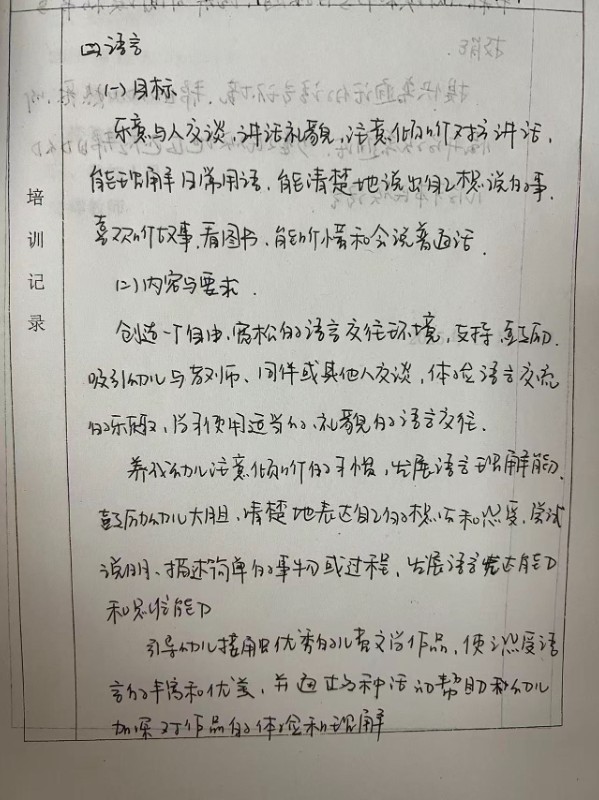 培训记录
四、语言
(一)目标
乐意与人交谈,讲话礼貌,注意倾听对方讲话,
能理解日常用语,能清楚地说出自己想说的事,
喜欢听故事、看图书,能听懂和会说普通话.
(二)内容与要求.
创造一个自由、宽松的语言交往环境,支持、鼓励、
吸引幼儿与教师、同伴或其他人交谈,体验语言交流
的乐趣,学习使用适当的、礼貌的语言交往.
养成幼儿注意倾听的习惯,发展语言理解能力.
鼓励幼儿大胆、清楚地表达自己的想法和感受,尝试
说明、描述简单的事物或过程,发展语言表达能力
和思维能力
引导幼儿接触优秀的儿童文学作品,使之感受语
言的丰富和优美,并通过多种活动帮助幼儿
加深对作品的体验和理解